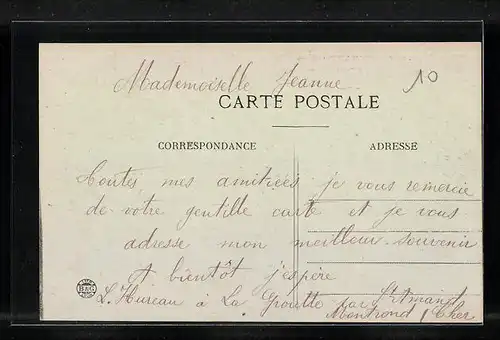 Mademoiselle Jeanne
10
CARTE POSTALE
CORRESPONDANCE
ADRESSE
toutes mes amitiées je vous remercie
de votre gentille carte et je vous
adresse mon meilleur souvenir
A bientôt j'espère
B&G
L. Hureau à La Groutte par St Amand
Montrond Cher